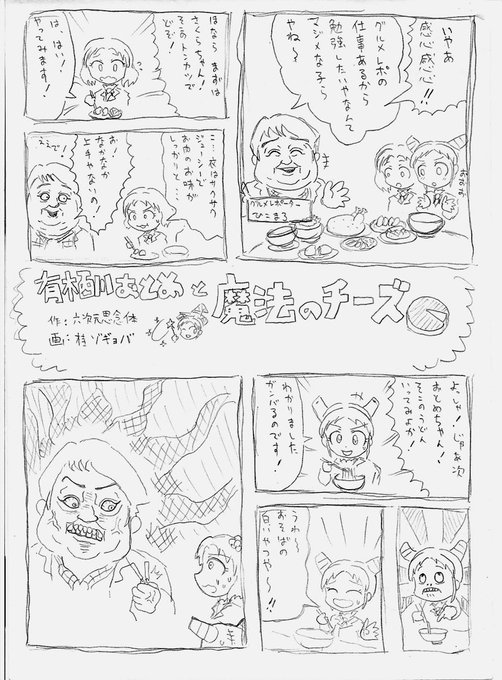 いやあ
感心感心!!
グルメレポの
仕事あるから
勉強したいやなんて
マジメな子ら
やね〜
グルメレポーター
ひこまる
ほなら まずは
さくらちゃん!
そのトンカツで
どぞ!
は、はい!
やってみます!
こ…衣はサクサク
ジューシーで
お肉のお味が
しっかりと…
お!
なかなか
上手やないの!
有栖川おとめと
魔法のチーズ
作:六次元思念体
画:村ゾギョバ
よっしゃ!じゃあ次
おとめちゃん!
そこのうどん
いってみよか!
わかりました
ガンバるのです!
うわ〜
おそばの